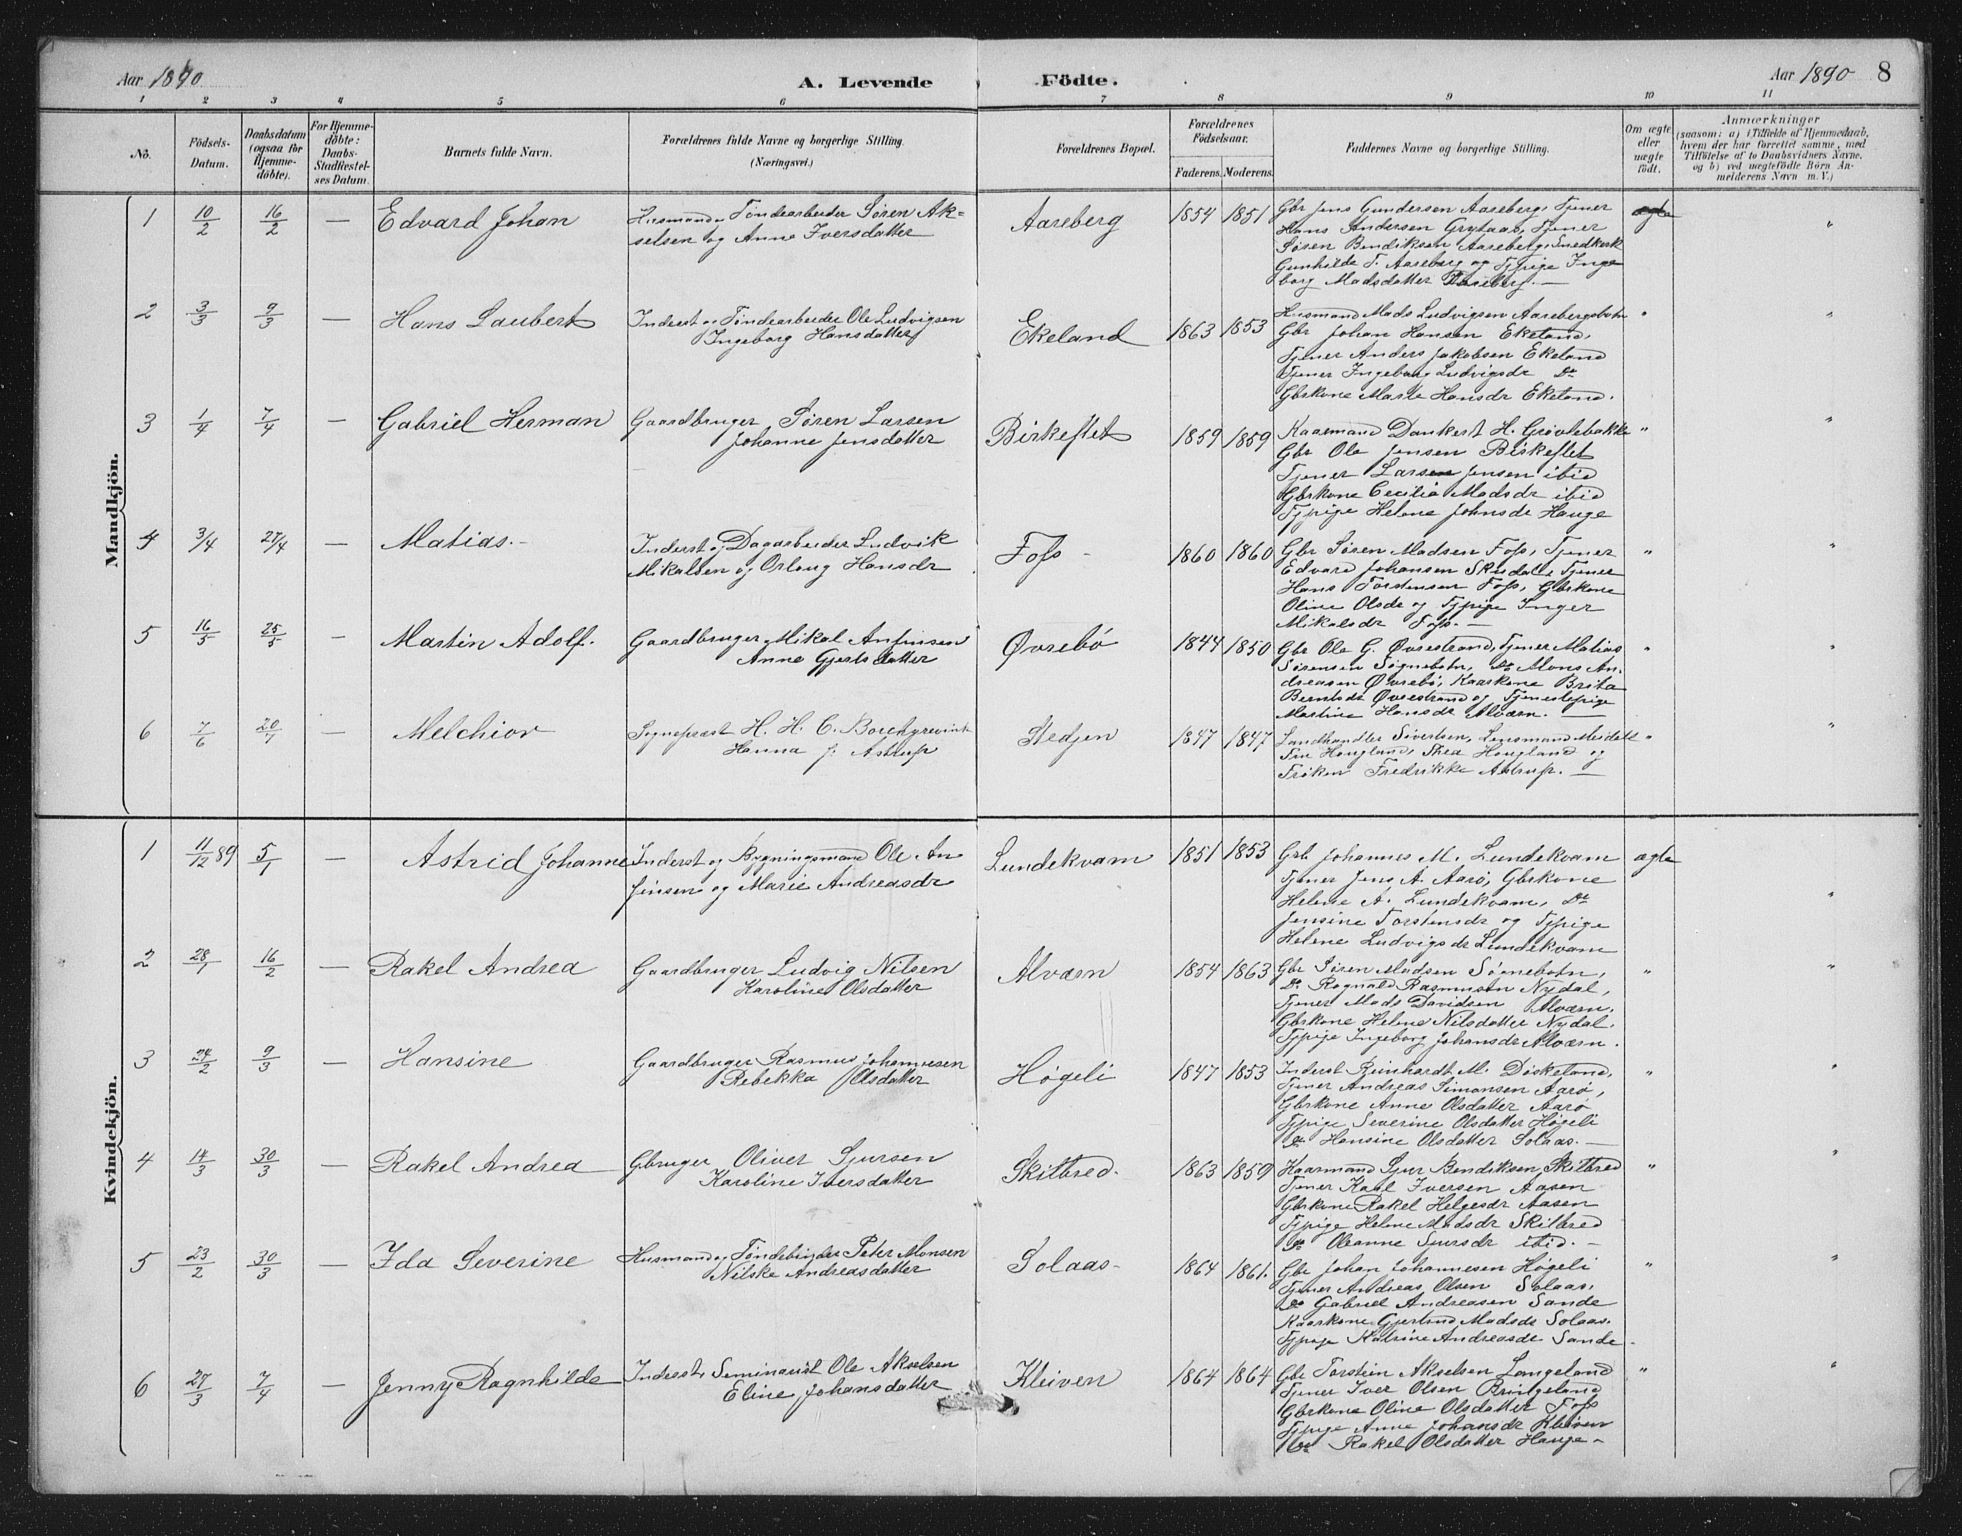 Aar 1890. A. Levende Födte. Aar 1890 8
1 2 3 4 5 6 7 8 9 10 11
No. Födsels-Datum. Daabsdatum (ogsaa for Hjemmedöbte). For Hjemmedöbte: Daabs-Stadfæstelses Datum. Barnets fulde Navn. Forældrenes fulde Navne og borgerlige Stilling. (Næringsvei.) Forældrenes Bopæl. Forældrenes Födselsaar. Faderens. Moderens. Faddernes Navne og borgerlige Stilling. Om ægte eller uægte födt. Anmærkninger (saasom: a) i Tilfælde af Hjemmedaab, hvem der har forrettet samme, med Tilföielse af to Daabsvidners Navne, og b) ved uægtefödte Börn Anmelderens Navn m. V.)
Mandkjön.
1 10/2 16/2 — Edvard Johan
Husmand og Töndearbeider Søren Ak=
selsen og Anne Iversdatter
Aareberg 1854 1851
Gbr Jens Gundersen Aareberg, Tjener
Hans Andersen Grytaas, Tjener
Søren Bendiksen Aareberg,
Gunhilde T. Aareberg og Tjpige Inge
borg Madsdatter Aareberg. —
ægte "
2 3/3 9/3 — Hans Laubert
Inderst og Töndearbeider Ole Ludvigsen
Ingeborg Hansdatter
Ekeland 1863 1853
Husmand Mads Ludvigsen Aarebergsbotn
Gbr Johan Hansen Ekeland,
Tjener Anders Jakobsen Ekeland
Tjener Ingeborg Ludvigsdr Do
Gbrkone Marte Hansdr Ekeland.
" "
3 1/4 7/4 — Gabriel Herman
Gaardbruger Søren Larsen
Johanne Jensdatter
Birkeflet 1859 1859
Kaarmand Dankert H. Grövlebakke
Gbr Ole Jensen Birkeflet
Tjener Larsen Jensen ibid
Gbrkone Cecilia Madsdr ibid
Tjpige Helene Johnsdr Hauge
" "
4 3/4 27/4 — Matias. –
Inderst og Dagarbeider Ludvik
Mikalsen og Orloug Hansdr
Foss – 1860 1860
Gbr Søren Madsen Foss, Tjener
Edvard Johansen Skusdal, Tjener
Hans Torstensen Foss, Gbrkone
Oline Olsdr og Tjpige Inger
Mikalsdr Foss. —
" "
5 16/5 25/5 — Martin Adolf.
Gaardbruger Mikal Anfinsen
Anne Gjertsdatter
Øvrebö 1844 1850
Gbr Ole G. Øvrestrand, Tjener Matias
Sörensen Sognebotn, Do Mons An-
dreasen Øvrebö, Kaarkone Brita
Berntsdr Øvrestrand og Tjenestepige
Martine Hansdr Alværn. —
" "
6 7/6 20/7 — Melchior
Sogneprest H. H. C. Borchgrevink
Hanna f. Astrup
Stedjen 1847 1847
Landhandler Sivertsen, Lensmand Meidell
Fru Hougland, Thea Hougland og
Fröken Fredrikke Astrup. —
" "
Kvindekjön.
1 11/12 89 5/1 — Astrid Johanne
Inderst og Bygningsmand Ole An
finsen og Marie Andreasdr
Lundekvam 1851 1853
Grb Johannes M. Lundekvam
Tjener Jens A. Aarö, Gbrkone
Helene A. Lundekvam, Do
Jensine Torstensdr og Tjpige
Helene Ludvigsdr Lundekvam
ægte "
2 28/1 16/2 — Rakel Andrea
Gaardbruger Ludvig Nilsen
Karoline Olsdatter
Alværn 1854 1863
Gbr Søren Madsen Sognebotn,
Do Rognald Rasmusen Nydal,
Tjener Mads Davidsen Alværn.
Gbrkone Helene Nilsdatter Nydal.
Tjpige Ingeborg Johansdr Alværn.
" "
3 24/2 9/3 — Hansine
Gaardbruger Rasmus Johannesen
Rebekka Olsdatter
Høgeli 1847 1853
Inderst Reinhardt M. Dösketand,
Tjener Andreas Simonsen Aarø,
Gbrkone Anne Olsdatter Aarø
Tjpige Severine Olsdatter Høgeli
Do Hansine Olsdatter Solaas. —
" "
4 14/3 30/3 — Rakel Andrea
Gbruger Oliver Sjursen
Karoline Iversdatter
Skilbred. 1863 1859
Kaarmand Sjur Bendiksen Skilbred
Tjener Karl Iversen Aasen
Gbrkone Rakel Helgesdr Aasen
Tjpige Helene Madsdr Skilbred
Do Oleanne Sjursdr ibid. –
" "
5 23/2 30/3 — Ida Severine
Husmand og Töndebinder Peter Monsen
Nilske Andreasdatter
Solaas – 1864 1861.
Gbr Johan Johannesen Høgeli
Tjener Andreas Olsen Solaas,
Do Gabriel Andreasen Sande
Kaarkone Gjertrud Madsdr Solaas.
Tjpige Katrine Andreasdr Sande –
" "
6 27/3 7/4 — Jenny Ragnhilde
Inderst, Seminarist Ole Akselsen
Eline Johansdatter
Kleiven 1864 1864
Gbr Torstein Akselsen Langeland
Tjener Iver Olsen Bringeland
Gbrkone Oline Olsdatter Foss
Tjpige Anne Johansdr Kleiven
Do Rakel Olsdatter Hauge –
" "